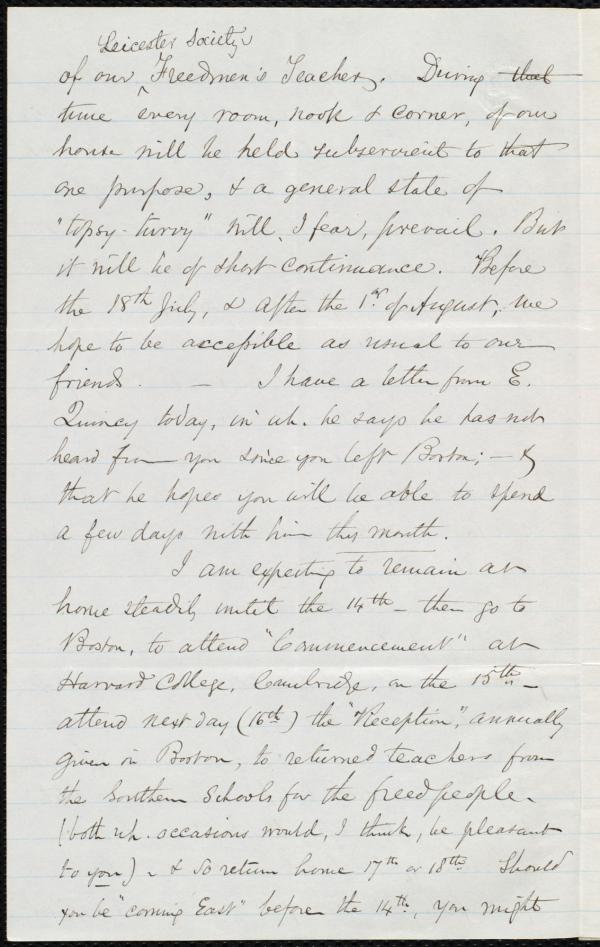 Leicester Society
of our ^ Freedmen's Teachers. During that
time every room, nook & corner, of our
house will be held subservient to that
one purpose, & a general state of
"topsy-turvy" will, I fear, prevail. But
it will be of short continuance. Before
the 18th July, & after the 1st of August, we
hope to be accessible as usual to our
friends. — I have a letter from E.
Quincy today, in wh. he says he has not
heard from you since you left Boston; — &
that he hopes you will be able to spend
a few days with him this month.
I am expecting to remain at
home steadily until the 14th — then go to
Boston, to attend "Commencement" at
Harvard College, Cambridge, on the 15th —
attend next day (16th) the "Reception", annually
given in Boston, to returned teachers from
the Southern Schools for the freedpeople.
(both wh. occasions would, I think, be pleasant
to you) — & so return home 17th or 18th. Should
you be "coming East" before the 14th, you might